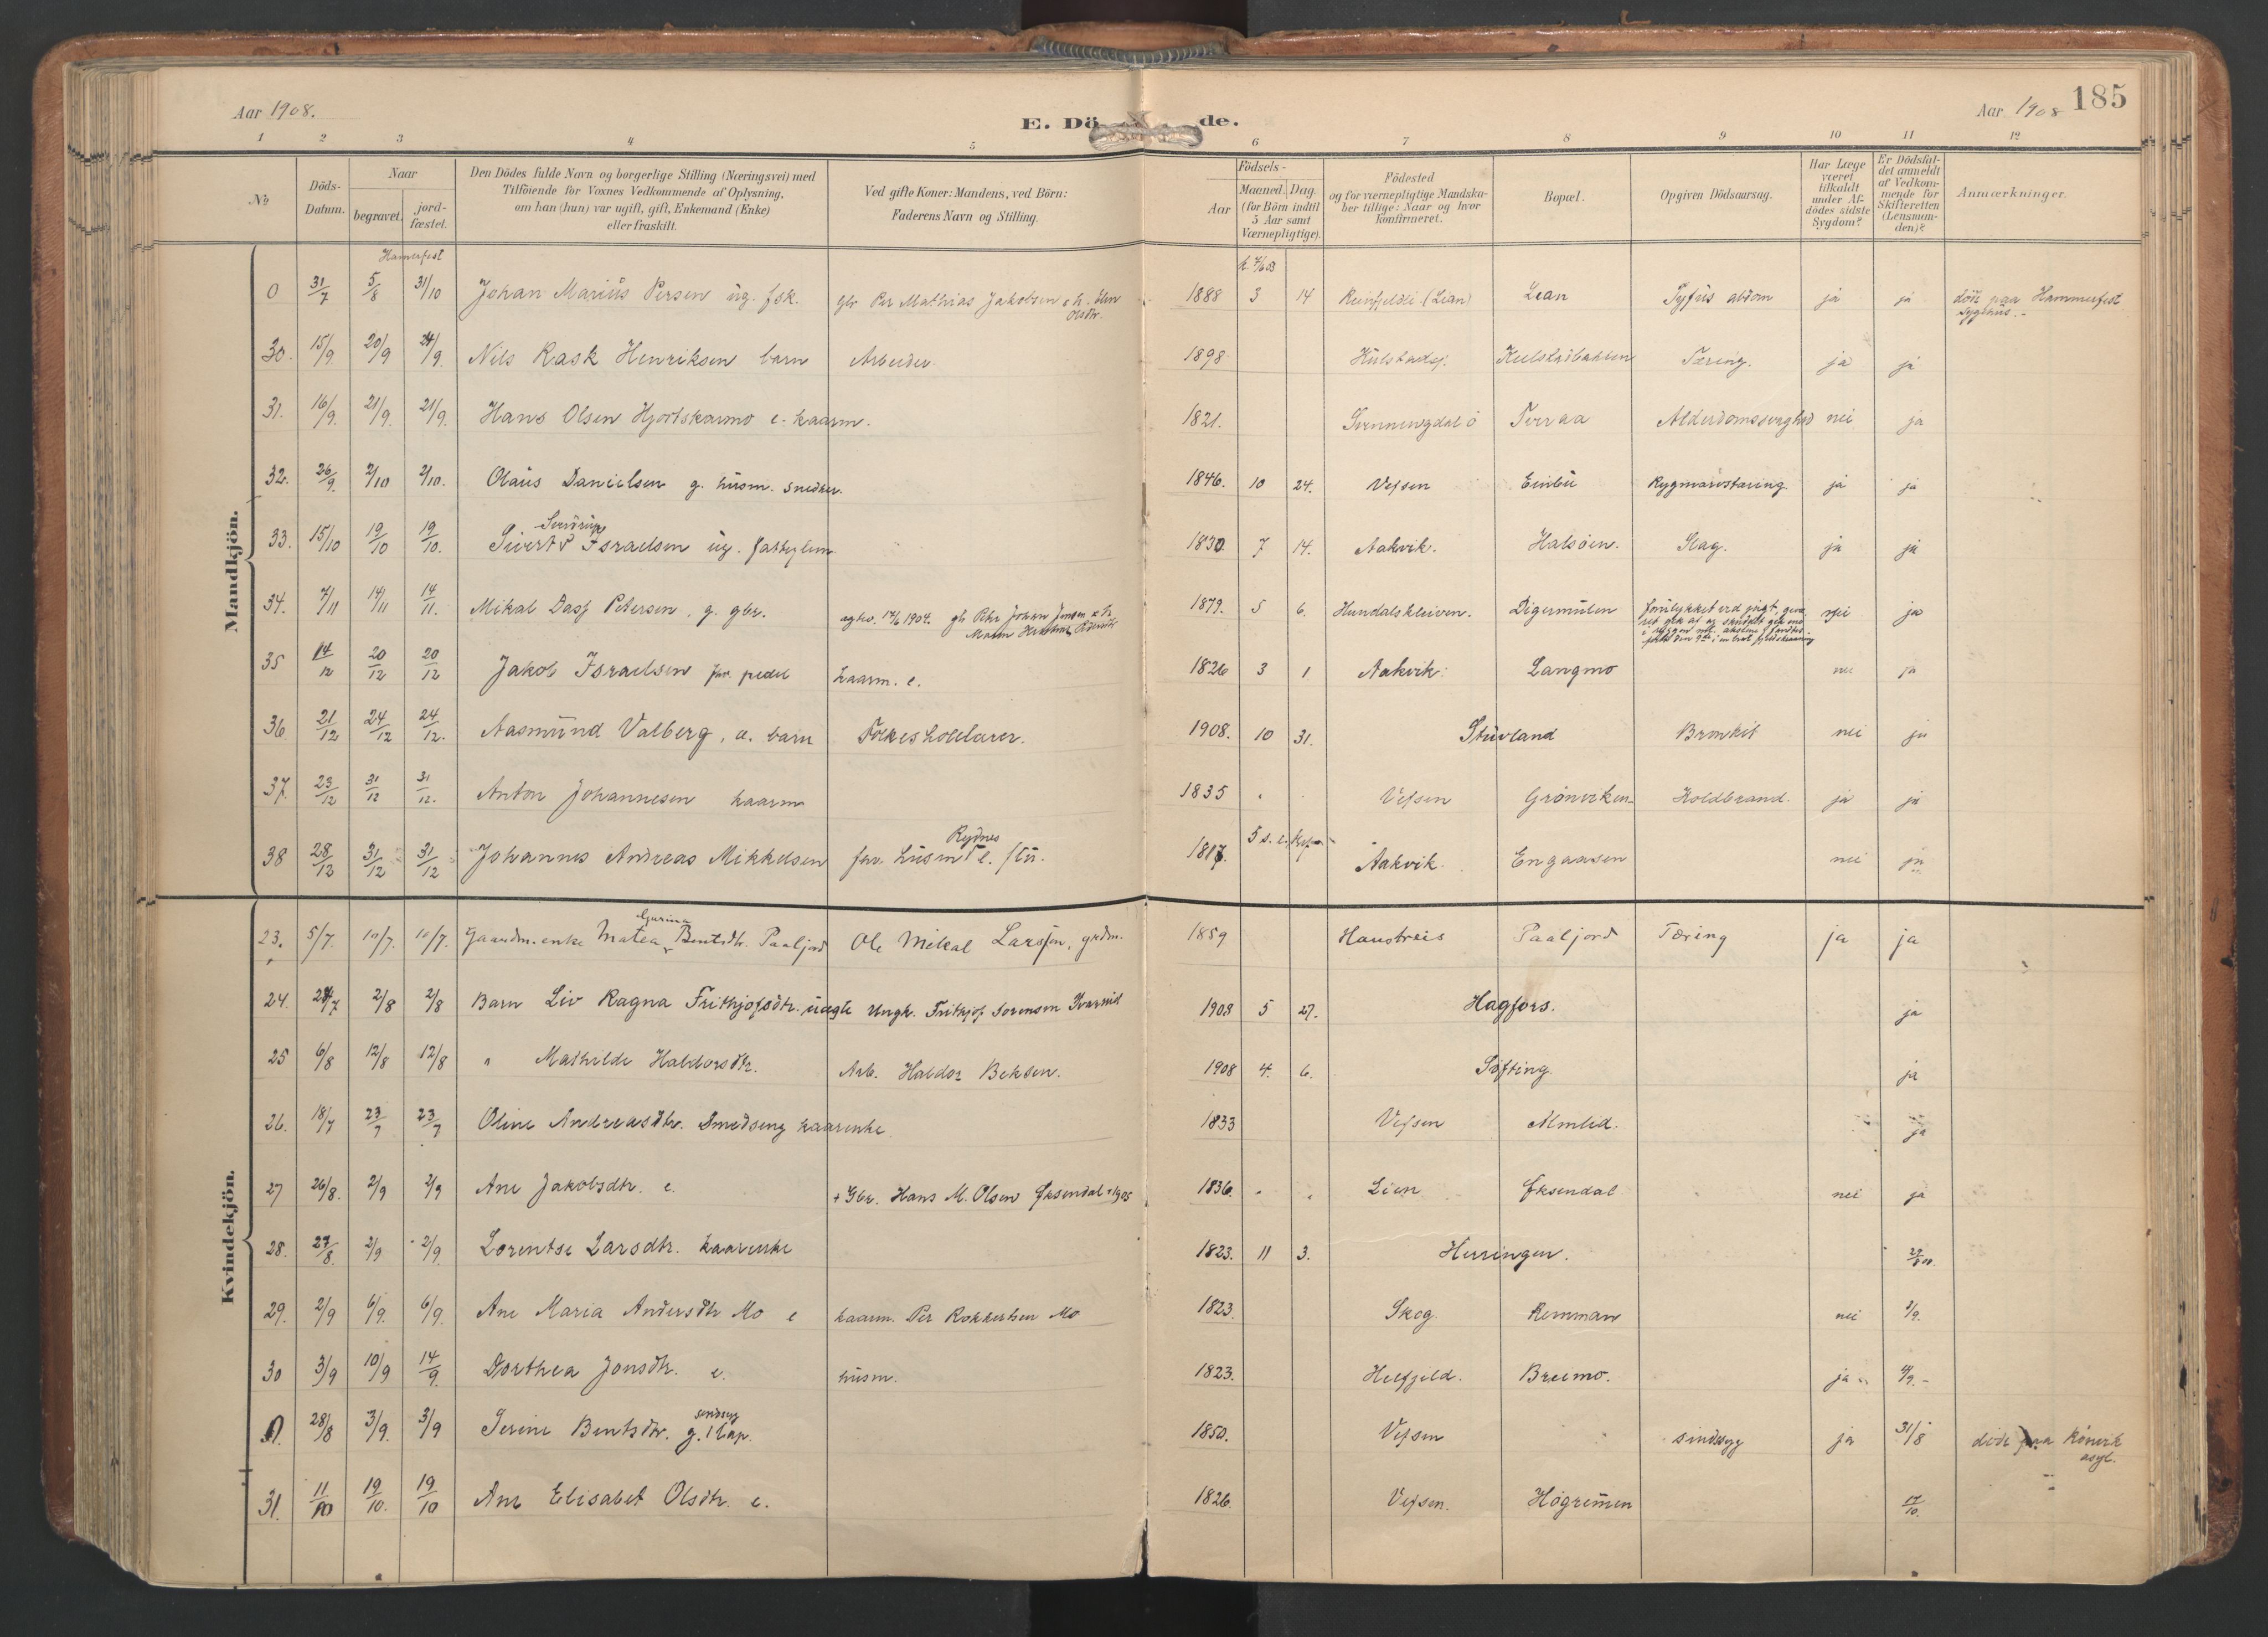 Aar 1908.
E. Dö de.
Aar 1908 185
1 2 3 4 5 6 7 8 9 10 11 12
No
Döds-Datum.
Naar
begravet.
jord-fæstet.
Den Dödes fulde Navn og borgerlige Stilling (Næringsvei) med
Tilföiende for Voxnes Vedkommende af Oplysning,
om han (hun) var ugift, gift, Enkemand (Enke)
eller fraskilt.
Ved gifte Koner: Mandens, ved Börn:
Faderens Navn og Stilling.
Födsels-
Aar
Maaned. Dag.
(for Börn indtil
5 Aar samt
Værnepligtige).
Födested
og for værnepligtige Mandska-
ber tillige: Naar og hvor
konfirmeret.
Bopæl.
Opgiven Dödsaarsag.
Har Læge
været
tilkaldt
under Af-
dödes sidste
Sygdom?
Er Dödsfal-
det anmeldt
af Vedkom-
mende for
Skifteretten
(Lensman-
den)?
Anmærkninger.
Mandkjön.
Hamerfest
0 31/7 5/8 31/10 Johan Marius Persen ug. fsk. gbr Per Mathias Jakobsen 1888 3 14 Reinfjeldli (Lian) Lean Tyfus abdom ja ja död paa Hammerfest
Olsdtr. Sygehus.
30. 15/9 20/9 24/9. Nils Rask Henriksen barn Arbeider. 1898 Kulstadsj. Kulstadbakken Tæring. ja ja
31. 16/9. 21/9. 21/9. Hans Olsen Hjortskarmo e. kaarm. 1821. Svenningdal ö Tveraa Alderdomssvaghed nei ja
32. 26/9. 2/10 2/10. Olaus Danielsen g. husm. snedker. 1846. 10 24. Vefsen Einbu Rygmarvstæring ja ja
33. 15/10 19/10 19/10. Sivert Israelsen ug. fattiglem 1830 7 14. Aakvik. Halsöen. Slag. ja ja
34. 7/11 14/11 14/11. Mikal Dasf Petersen, g. gbr. 1904. 1879. 5 6. Hundalskleiven. Digermulen nei ja
35 14/12 20/12 20/12 Jakob Israelsen fhv. pedel kaarm. e. 1826 3 1 Aakvik. Langmo nei ja
36. 21/12 24/12 24/12. Aasmund Valberg, æ. barn Folkeskolelærer. 1908. 10 31. Stuvland Bronkit nei ja
37. 23/12 31/12 31/12. Anton Johannesen kaarm 1835 Vefsen Grönerken Koldbrand. ja ja
Rydnes
38 28/12 31/12 31/12 Johannes Andreas Mikkelsen fhv. husm e. 1817. Aakvik. Engaasen nei ja
Kvindekjön.
Gurina
23. 5/7. 10/7. 10/7. Gaardm. enke Matea Bentsdtr. Paaljord Ole Mikal Larssen, grdm. 1859 Haustreis Paaljord Tæring ja ja
24. 2/8 2/8 Barn Liv Ragna Frithjofsdtr. uægte Ungk. Frithjof Sorensen 1908 5 27. Hagfors. ja
25 6/8 12/8 12/8 " Mathilde Haldorsdtr. Arb. Haldor Beksen. 1908 4. 6. Söfting. ja
26. 18/7 23/7 23/7 Oline Andreasdtr. Smedseng kaarenke 1833 Vefsen Almlid. ja
27 26/8. 2/9 2/9 Ane Jakobsdtr. e. + Gbr. Hans M. Olsen Eksendal 1905 1836. Lien Eksendal nei ja
28. 27/8. 2/9 2/9. Lorentse Larsdtr. kaarenke 1823. 11 3. Herringen.
29. 2/9 6/9. 6/9. Ane Maria Andersdtr Mo e kaarm. Per Rokkertsen Mo 1823. Skog. Remman nei 2/9.
30 3/9 10/9 14/9. Dorthea Jonsdtr. e. husm. 1823. Helfjeld. Breimo. ja 4/9.
sindssyg
28/8 3/9. 3/9 Serine Bentsdtr. g. Lap. 1850. Vefsen sindssyg ja 31/8 döde paa Rönvik
asyl.
31. 11/10 19/10. 19/10 Ane Elisabet Olsdtr. e. 1826. Vefsen. Högremen 17/10.